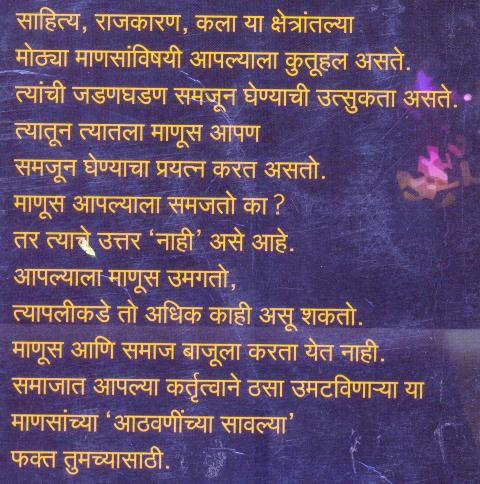 साहित्य, राजकारण, कला या क्षेत्रांतल्या
मोठ्या माणसांविषयी आपल्याला कुतूहल असते.
त्यांची जडणघडण समजून घेण्याची उत्सुकता असते.
त्यातून त्यातला माणूस आपण
समजून घेण्याचा प्रयत्न करत असतो.
माणूस आपल्याला समजतो का ?
तर त्याचे उत्तर ‘नाही’ असे आहे.
आपल्याला माणूस उमगतो,
त्यापलीकडे तो अधिक काही असू शकतो.
माणूस आणि समाज बाजूला करता येत नाही.
समाजात आपल्या कर्तृत्वाने ठसा उमटविणाऱ्या या
माणसांच्या ‘आठवणींच्या सावल्या’
फक्त तुमच्यासाठी.